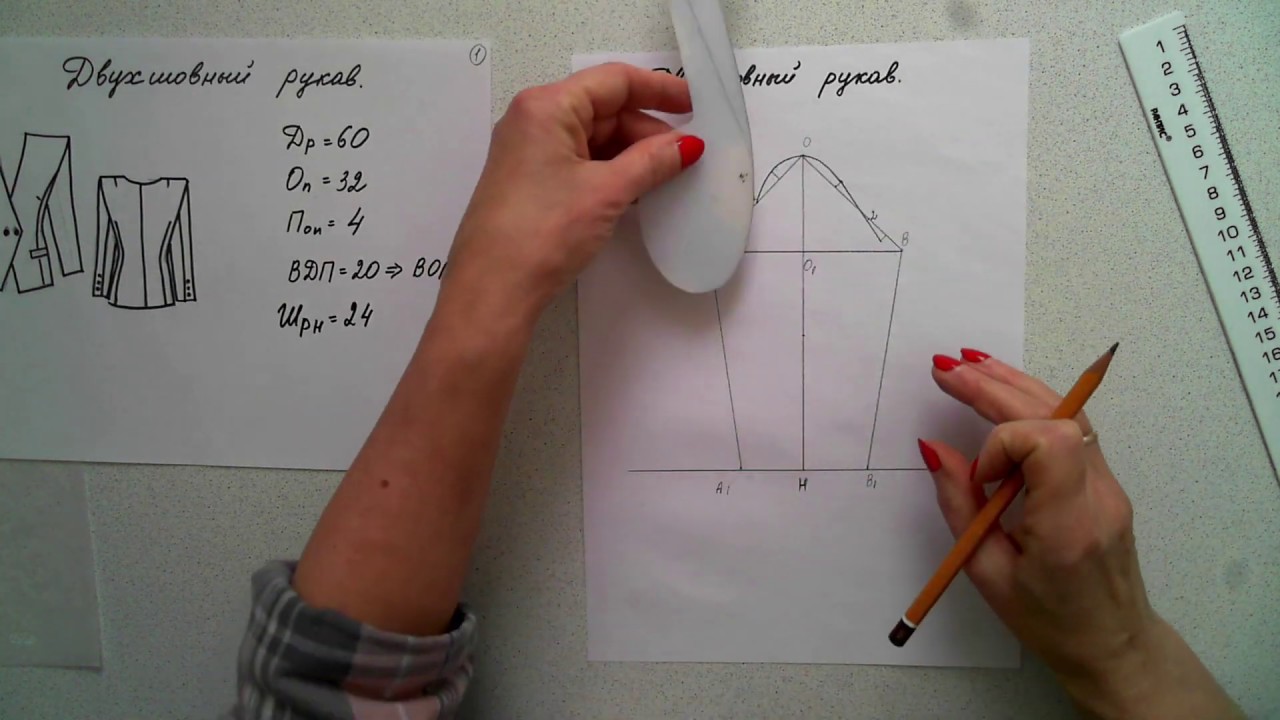 ①
Двухшовный рукав.
Др=60
Оп=32
Поп=4
ВДП=20⇒ВО
Шрн=24
рукав.
О
В
О₁
А₁
Н
В₁
1
2
3
4
5
6
7
8
9
10
11
12
13
14
15
16